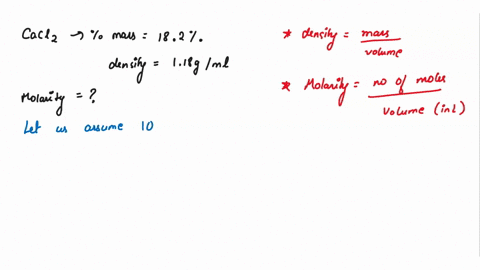 CaCl2 → % mass = 18.2%.
density = 1.18g/ml
Molarity = ?
Let us assume 10
* density = mass / volume
* Molarity = no of moles / volume (in L)